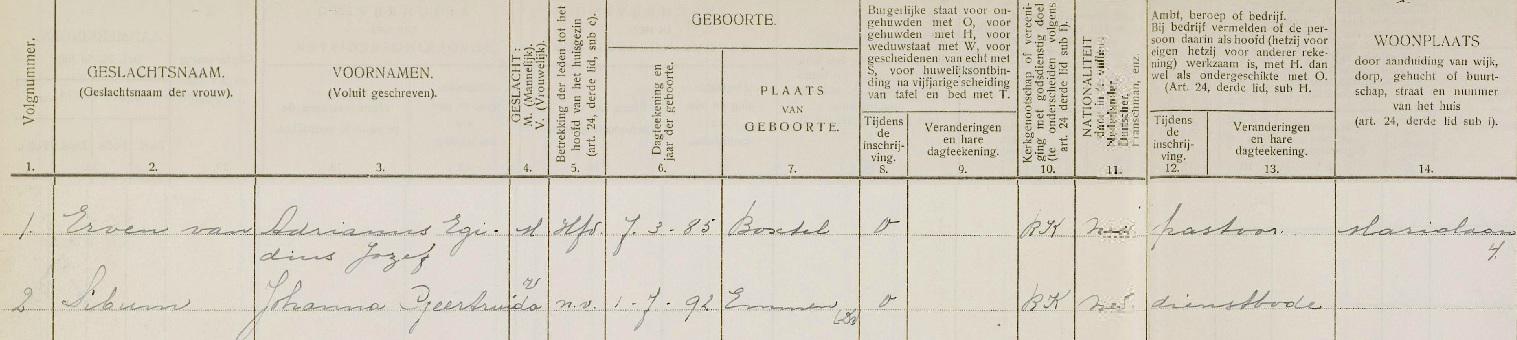 Volgnummer.
1.
GESLACHTSNAAM.
(Geslachtsnaam der vrouw).
2.
VOORNAMEN.
(Voluit geschreven).
3.
GESLACHT:
M. (Mannelijk).
V. (Vrouwelijk).
4.
Betrekking der leden tot het
hoofd van het huisgezin
(art. 24, derde lid, sub c).
5.
GEBOORTE.
Dagteekening en
jaar der geboorte.
6.
PLAATS
VAN
GEBOORTE.
7.
Burgerlijke staat voor on-
gehuwden met O, voor
gehuwden met H, voor
weduwstaat met W, voor
gescheidenen van echt met
S, voor huwelijksontbin-
ding na vijfjarige scheiding
van tafel en bed met T.
Tijdens
de
inschrij-
ving.
8.
Veranderingen
en hare
dagteekening.
9.
Kerkgenootschap of vereeni-
ging met godsdienstig doel
(te onderscheiden volgens
art. 24 derde lid sub f).
10.
NATIONALITEIT
Nederlander,
Duitscher,
Franschman, enz.
11.
Ambt, beroep of bedrijf.
Bij bedrijf vermelden of de per-
soon daarin als hoofd (hetzij voor
eigen hetzij voor anderer reke-
ning) werkzaam is, met H. dan
wel als ondergeschikte met O.
(Art. 24, derde lid, sub H.
Tijdens
de
inschrij-
ving.
12.
Veranderingen
en hare
dagteekening.
13.
WOONPLAATS
door aanduiding van wijk,
dorp, gehucht of buurt-
schap, straat en nummer
van het huis
(art. 24, derde lid sub i).
14.
1. Erven van Adrianus Egi- M Hfd. 7.3-85 Boxtel O RK Ned pastoor. Marialaan
dius Jozef 4.
2 Sibum Johanna Geertruida V n.v. 1-7-92 Emmen O RK Ned. dienstbode